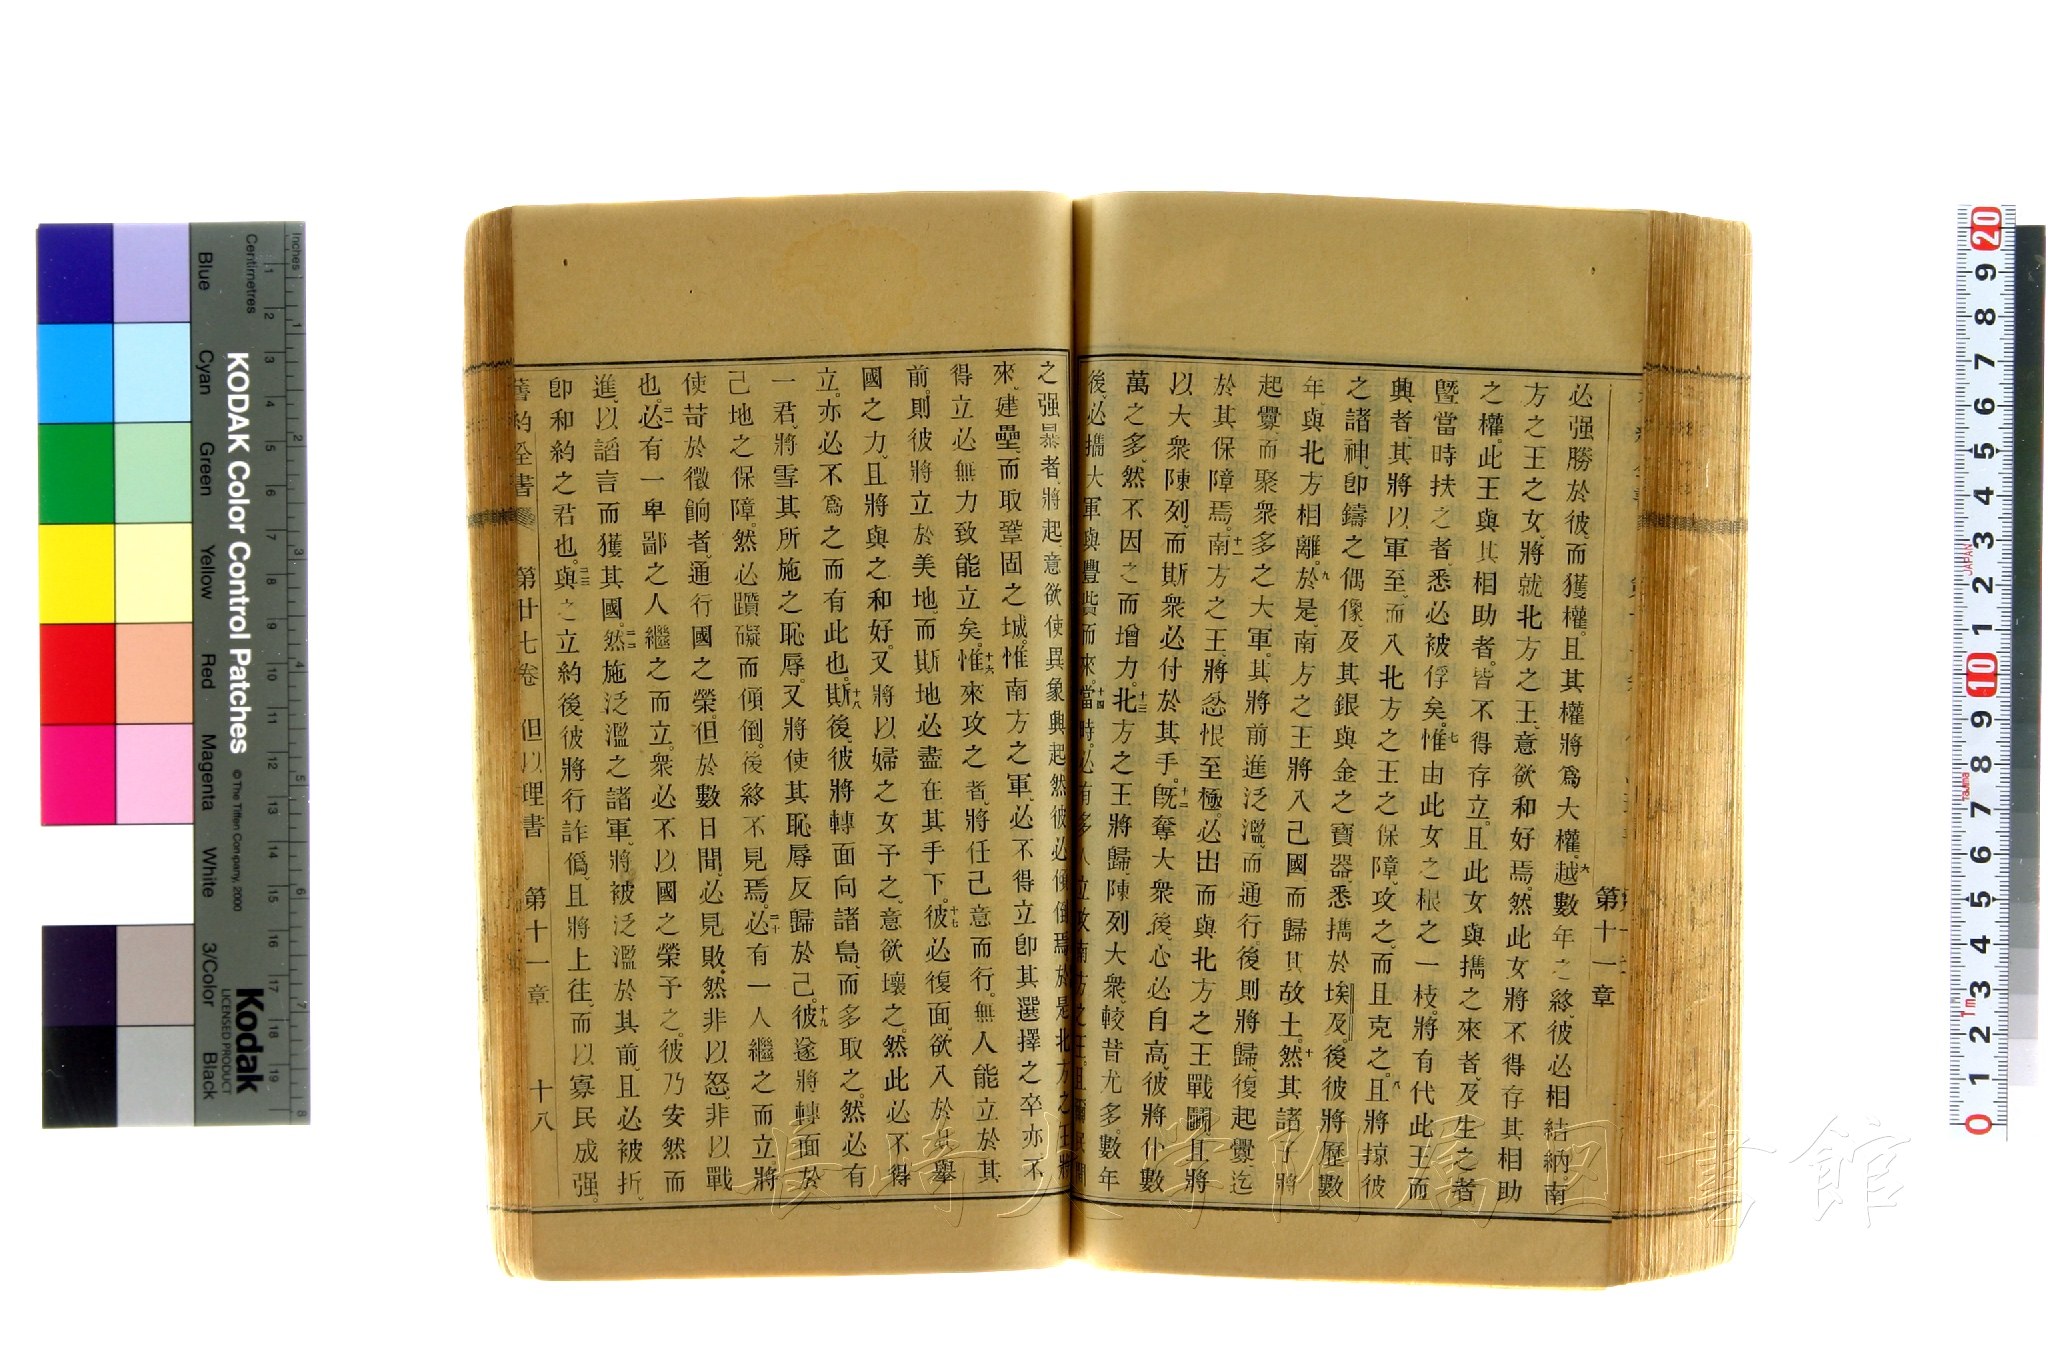 必强勝於彼、而獲權。且其權將爲大權。六越數年之終、彼必相結納。南
方之王之女、將就北方之王、意欲和好焉。然此女將不得存其相助
之權。此王與其相助者、皆不得存立。且此女與擕之來者、及生之者
曁當時扶之者、悉必被俘矣。七惟由此女之根之一枝、將有代此王而
興者、其將以軍至、而入北方之王之保障、攻之、而且克之。八且將掠彼
之諸神、卽鑄之偶像、及其銀與金之寶器、悉擕於埃及。後彼將歷數
年與北方相離。九於是、南方之王將入己國而歸其故土。十然其諸子將
起釁而聚衆多之大軍。其將前進泛濫、而通行。後則將歸、復起釁、迄
於其保障焉。十一南方之王、將忿恨至極、必出而與北方之王戰鬭、且將
以大衆陳列、而斯衆必付於其手。十二旣奪大衆後、心必自高、彼將仆數
萬之多、然不因之而增力。十三北方之王將歸、陳列大衆、較昔尤多。數年
後、必擕大軍與豐貲而來。十四當時、必有多人立攻南方之王。且爾民間
之强暴者、將起、意欲使異象興起、然彼必傾倒焉。於是北方之王將
來、建壘、而取鞏固之城。惟南方之軍、必不得立、卽其選擇之卒亦不
得立、必無力致能立矣。十六惟來攻之者、將任己意而行。無人能立於其
前。則彼將立於美地、而斯地必盡在其手下。十七彼必復面、欲入於其舉
國之力、且將與之和好。又將以婦之女予之、意欲壞之。然此必不得
立。亦必不爲之而有此也。十八斯後、彼將轉面向諸島、而多取之。然必有
一君、將雪其所施之恥辱。又將使其恥辱反歸於己。十九彼遂將轉面於
己地之保障。然必躓礙而傾倒。後終不見焉。二十必有一人繼之而立、將
使苛於徵餉者、通行國之榮。但於數日間、必見敗。然非以怒、非以戰
也。二一必有一卑鄙之人繼之而立。衆必不以國之榮予之。彼乃安然而
進、以諂言而獲其國。二二然施泛濫之諸軍、將被泛濫於其前、且必被折、
卽和約之君也。二三與之立約後、彼將行詐僞、且將上往、而以寡民成强。
舊約全書 第廿七卷 但以理書 第十一章 十八
第十一章
KODAK Color Control Patches
© The Tiffen Company, 2000
Kodak
LICENSED PRODUCT
Inches
Centimetres
Blue Cyan Green Yellow Red Magenta White 3/Color Black
長崎大学附属図書館
JAPAN